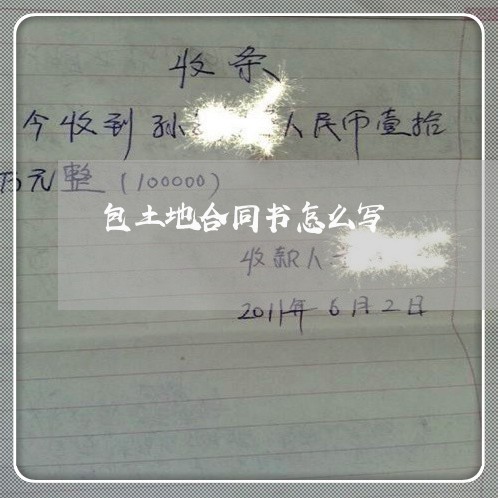 收条
今收到孙 人民币壹拾
万元整(100000)
包土地合同书怎么写
收款人
2011年6月2日